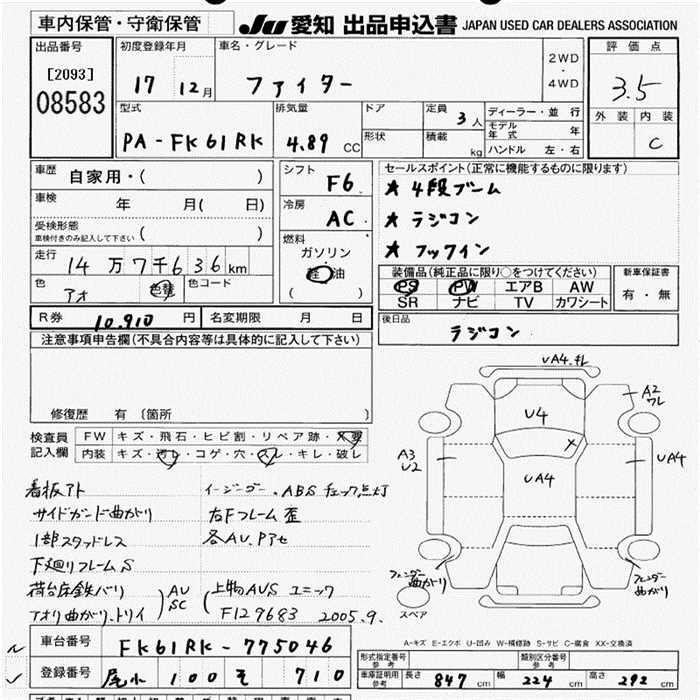 車内保管・守衛保管 JU 愛知 出品申込書 JAPAN USED CAR DEALERS ASSOCIATION
出品番号 初度登録年月 車名・グレード 2WD・4WD 評価点
[2093] 17 12月 ファイター 3.5
08583
型式 排気量 ドア 定員 3人 ディーラー・並行 外装 内装
PA-FK61RK 4.89 CC 形状 積載 kg モデル年式 年 C
ハンドル 左・右
車歴 自家用・( ) シフト F6 セールスポイント(正常に機能するものに限ります)
車検 年 月( 日) 冷房 AC ★ 4段ブーム
受検形態 ( ) ★ ラジコン
車検付きのみ記入して下さい 燃料 ★ フックイン
走行 14万7千636km ガソリン
軽・油
( )
色 アオ 色替 色コード
装備品(純正品に限り○をつけてください) 新車保証書
PS PW エアB AW 有・無
SR ナビ TV カワシート
R券 10,910円 名変期限 月 日 後日品 ラジコン
注意事項申告欄(不具合内容等は具体的に記入して下さい)
修復歴 有 (箇所 )
検査員記入欄 FW キズ・飛石・ヒビ割・リペア跡・×要
内装 キズ・汚レ・コゲ・穴・スレ・キレ・破レ
看板アト イージーゴー、ABSチェック点灯
サイドガード曲がり 右Fフレーム歪
1部スタッドレス 各AU.Pアセ
下廻りフレームS
荷台床鉄バリ AU 上物AUS ユニック
アオリ曲がり、トリイ SC F129683 2005.9.
UA4.キレ
U4
A2
ワレ
A3
U2
UA4
UA4
フェンダー曲がり
フェンダー曲がり
スペア
A-キズ E-エクボ U-凹み W-補修跡 S-サビ C-腐食 XX-交換済
車台番号 FK61RK-775046
登録番号 尾小 100 そ 710
形式指定番号 参考 類別区分番号 参考
車庫証明用参考 長さ 847 cm 幅 224 cm 高さ 292 cm